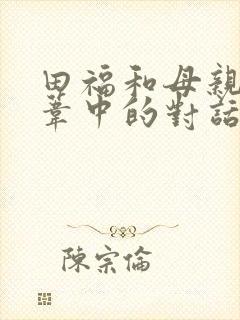 田福和母親
葦中的對話
陳宗倫